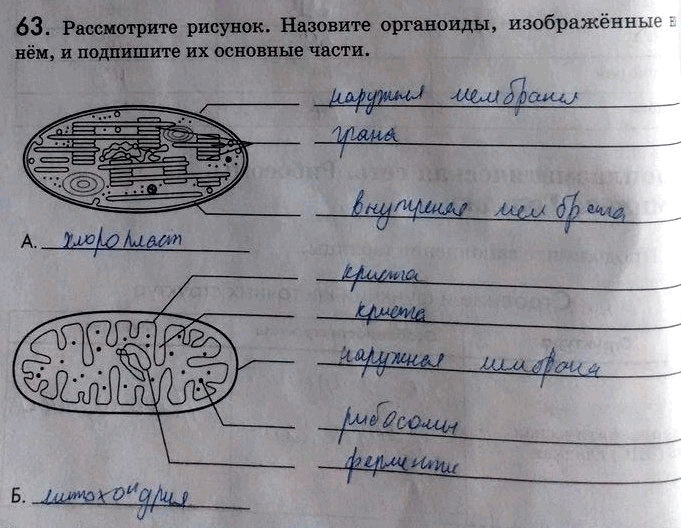 63. Рассмотрите рисунок. Назовите органоиды, изображённые в
нём, и подпишите их основные части.
наружная мембрана
грана
внутреняя мембрана
А. хлоропласт
криста
криста
наружная мембрана
рибосомы
ферменты
Б. митохондрия